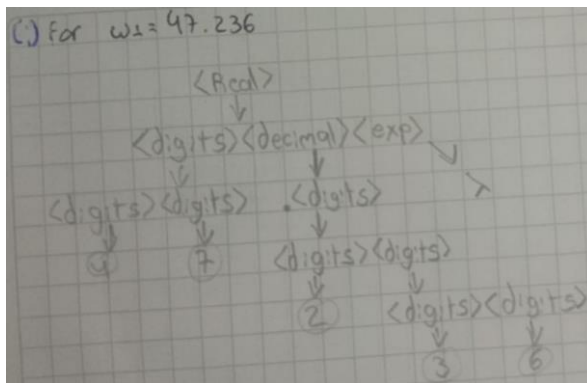 (i) For w1 = 47.236
<Real>
<digits><decimal><exp>
<digits><digits> .<digits> λ
4 7 <digits><digits>
2 <digits><digits>
3 6